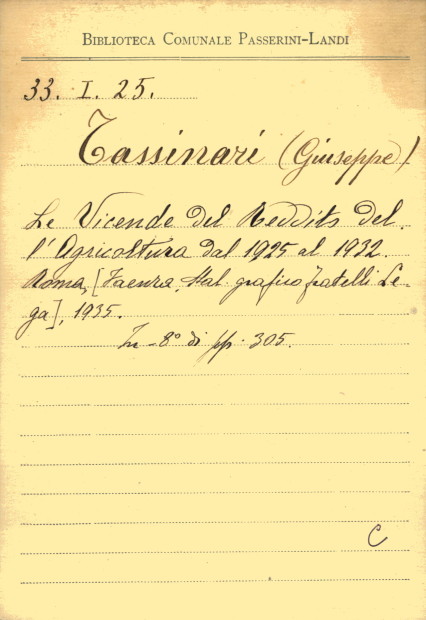 BIBLIOTECA COMUNALE PASSERINI-LANDI
33. I. 25.
Tassinari (Giuseppe).
Le Vicende del Reddito del-
l'Agricoltura dal 1925 al 1932.
Roma, [Faenza, Stab. grafico fratelli Le-
ga], 1935.
In-8° di pp. 305.
C